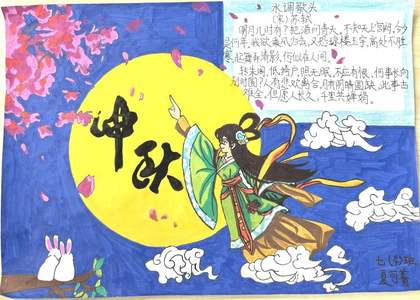 水调歌头
(宋)苏轼
明月几时有?把酒问青天,不知天上宫阙,今夕
是何年,我欲乘风归去,又恐琼楼玉宇,高处不胜
寒,起舞弄清影,何似在人间。
转朱阁,低绮户,照无眠,不应有恨,何事长向
别时圆?人有悲欢离合,月有阴晴圆缺,此事古
难全,但愿人长久,千里共婵娟。
中秋